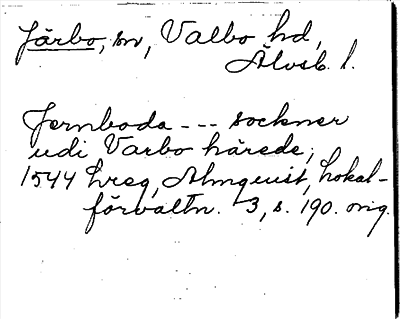 Järbo, sn, Valbo hd,
Älvsb. l.
Jernboda --- sockner
udi Varbo härede,
1544 hreg, Almquist, Lokal-
förvaltn. 3, s. 190. orig.